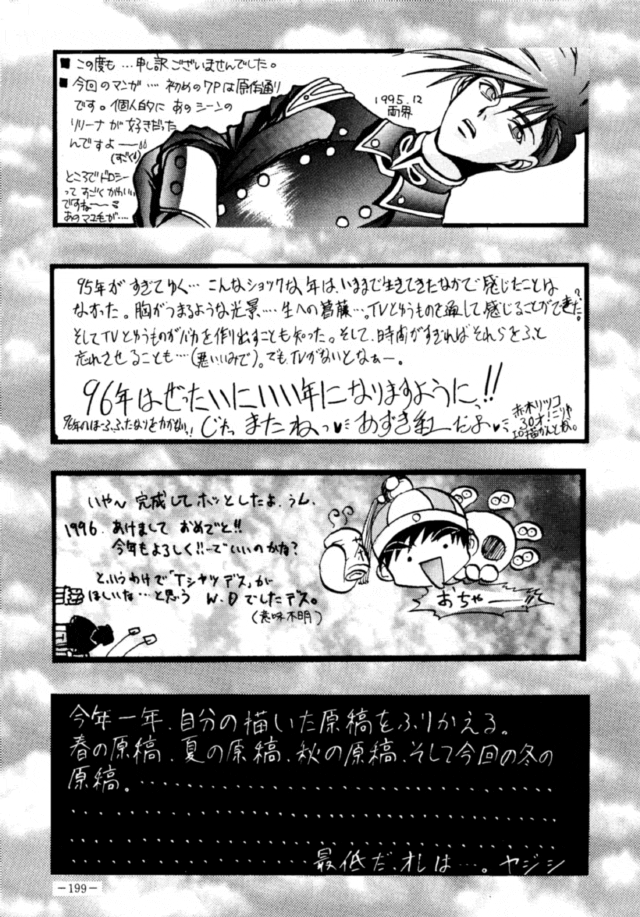 ■ この度も…申し訳ございませんでした。
■ 今回のマンガ… 初めの7Pは原作通り
です。個人的に あのシーンの
リリーナが好きだった
んですよ〜
ところでドロシー
って すごくかわいい
ですね〜
あのマユ毛が…
1995.12
両界
95年がすぎてゆく… こんなショックな年は、いままで生きてきたなかで感じたことは
なかった。胸がつまるような光景…生への葛藤…。TVというものを通して感じることができた。
そしてTVというものがバカを作り出すことも知った。そして、時間がすぎればそれらをふと
忘れさせることも…(悪いいみで)。でもTVがないとなぁー。
96年はぜったいにいい年になりますように!!
じゃっ またねっ♥ あずき紅だよ♥
赤木リツコ
30才!
いやん 完成してホッとしたよ、うん。
1996. あけまして おめでと!!
今年もよろしく!!…でいいのかな?
というわけで「Tシャツデス」が
ほしいな…と思う W.Dでしたデス。
(意味不明)
おちゃーー!!
今年一年、自分の描いた原稿をふりかえる。
春の原稿、夏の原稿、秋の原稿、そして今回の冬の
原稿。・・・・・・・・・・・・・・・・・・・・・・・・・・・・
・・・・・・・・・・・・・・・・・・・・・・・・・・・・・・・・
・・・・・・・・・・・・・・・・・・・・・・・・・・・・・・・・
・・・・・・・・・・・・・・・・最低だ、オレは…。ヤジシ
－199－